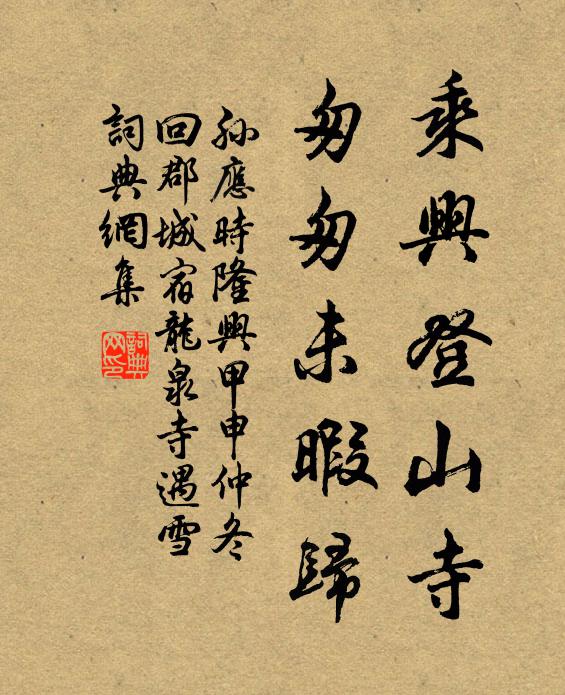 乘興登山寺
匆匆未暇歸
孫應時隆興甲申仲冬
回郡城宿龍泉寺遇雪
詞典網集
詞典
网印